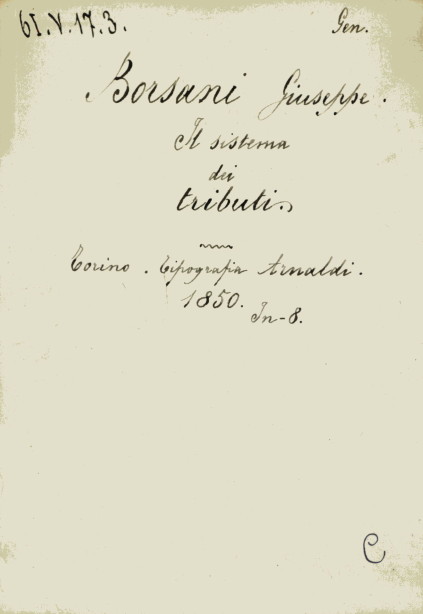 61.V.17.3. Gen.
Borsani Giuseppe.
Il sistema
dei
tributi.
Torino. Tipografia Arnaldi.
1850.
In-8.
C